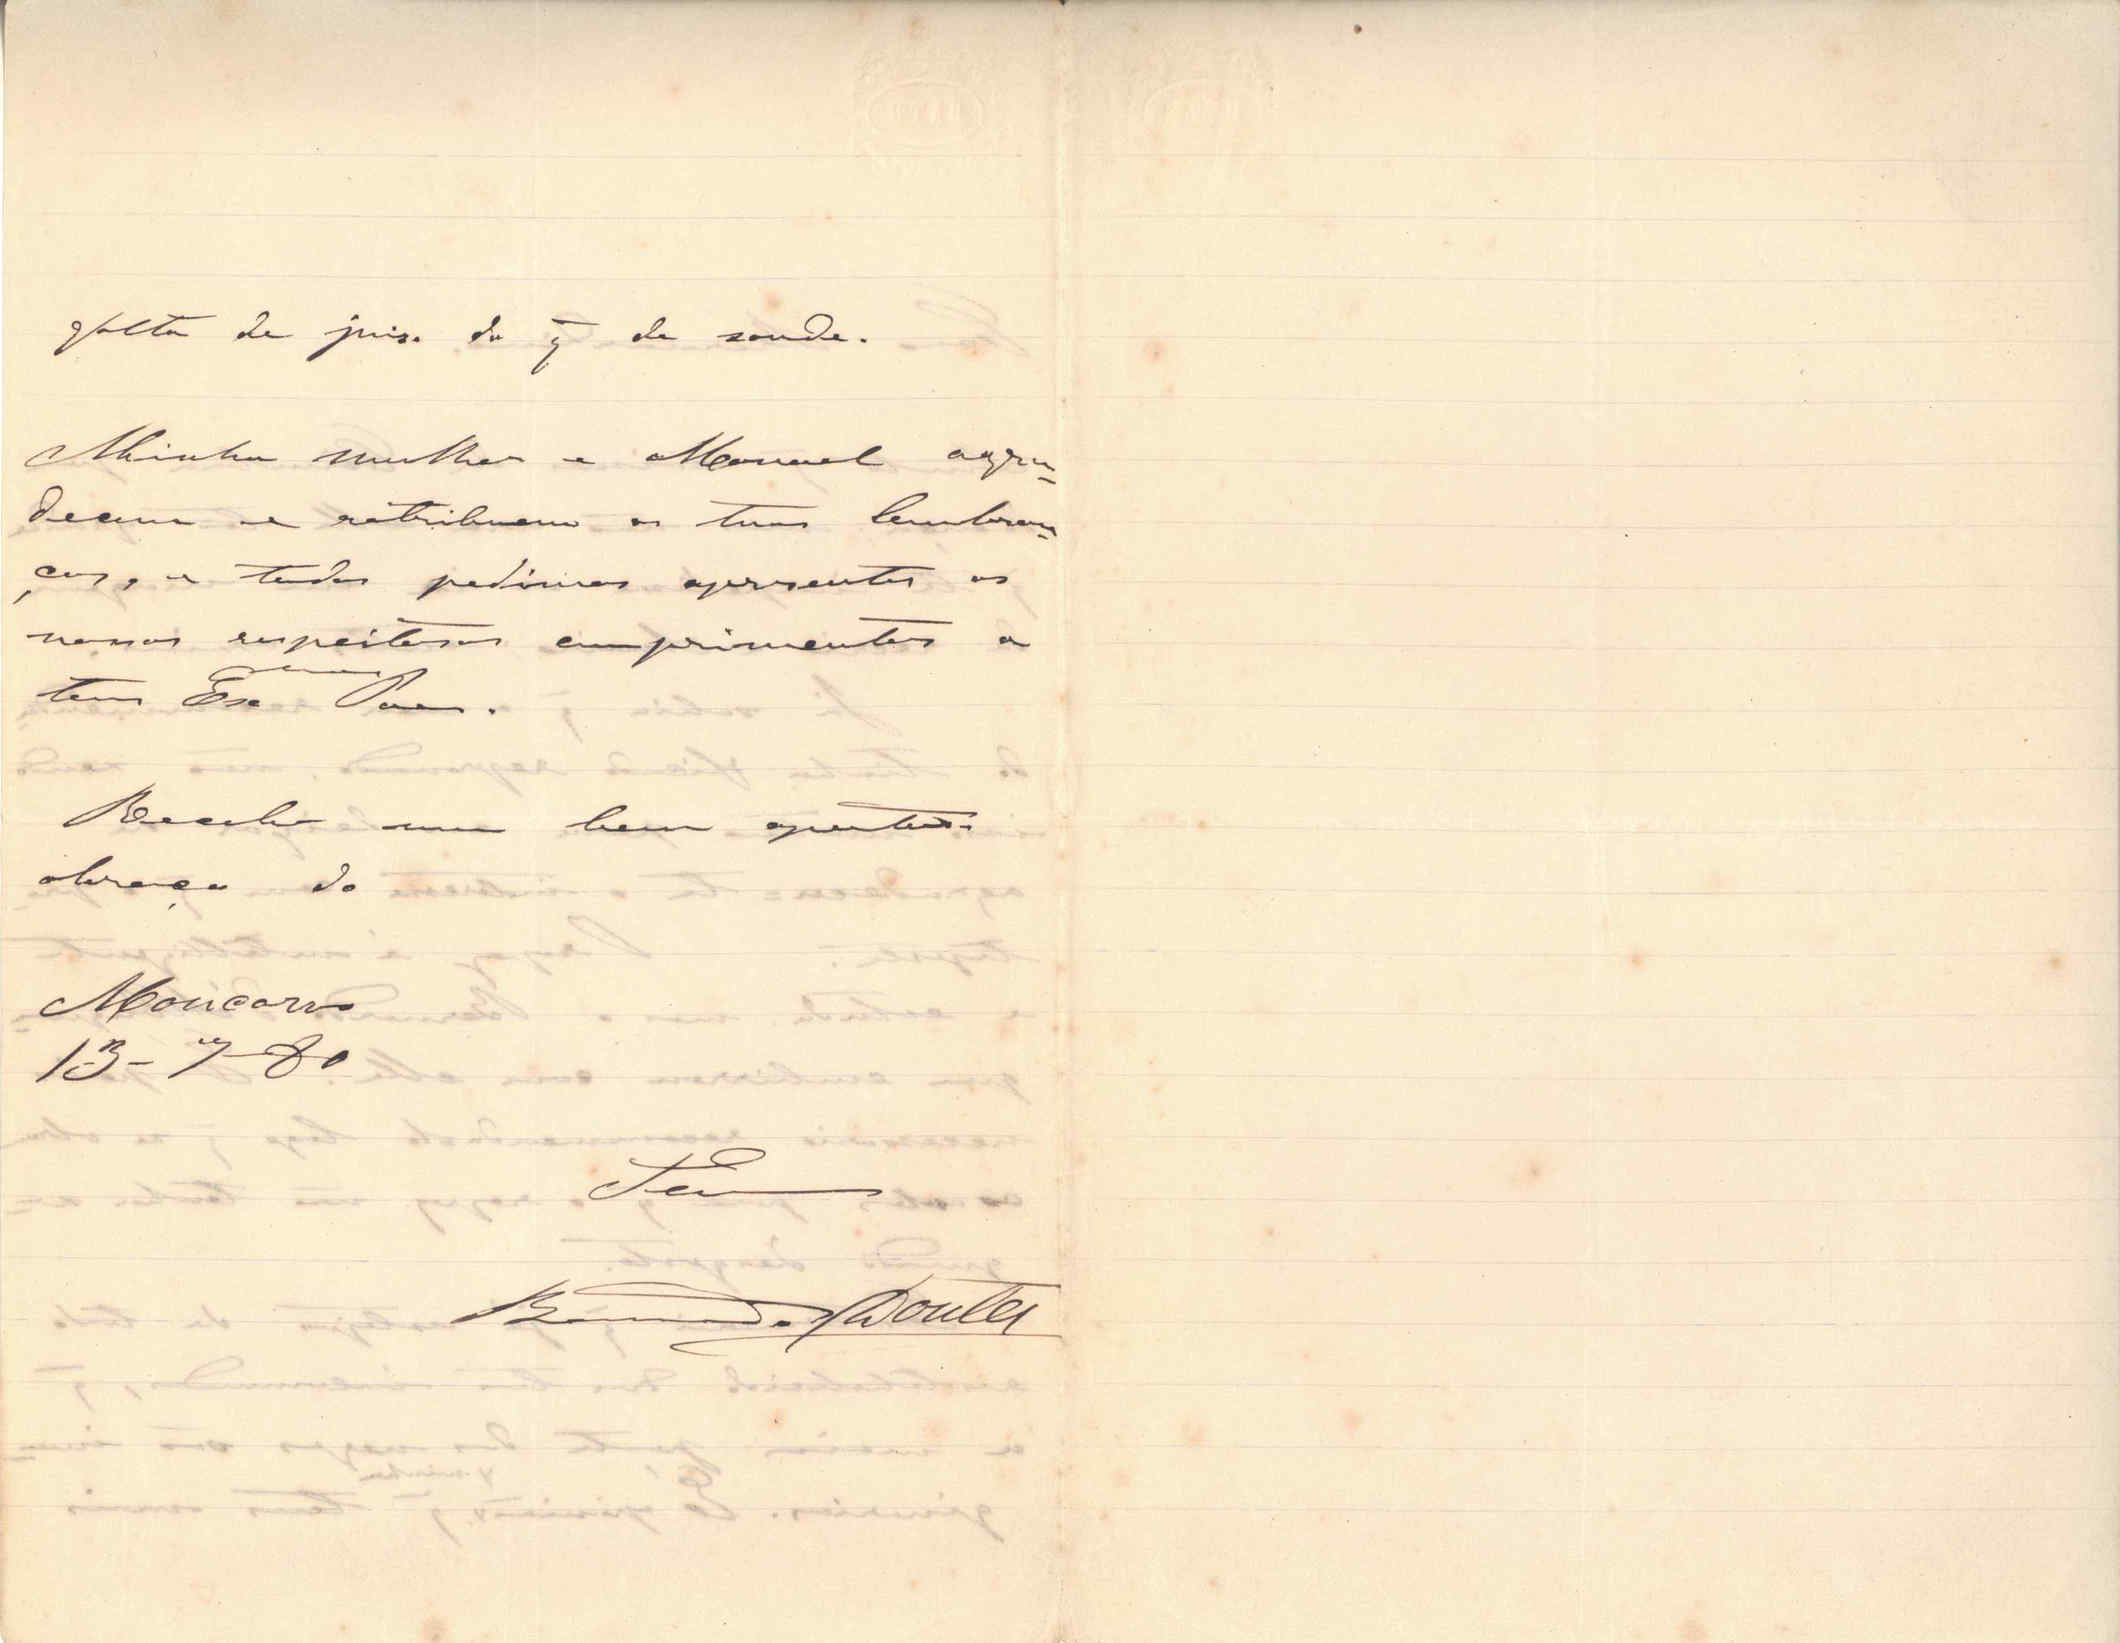 falta de juiso do q̃ de saude.
Minha mulher e Manoel agra=
decem e retribuem as tuas lembran=
ças, e todos pedimos apresentes os
nossos respeitosos cumprimentos a
teus Exᵐᵒˢ Paes.
Recebe um bem apertado
abraço do
Moncorvo
13-7-80
Teu
Bernardo Doutel